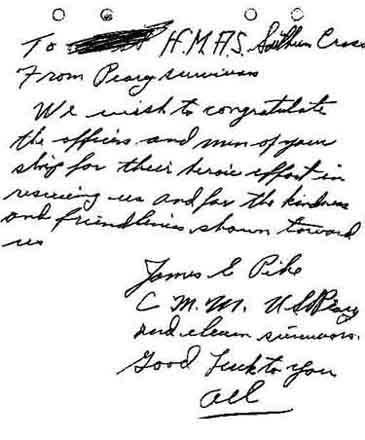 To H.M.A.S. Southern Cross
From Peary survivors
We wish to congratulate
the officers and men of your
ship for their heroic effort in
rescuing us and for the kindness
and friendliness shown toward
us
James E Pike
C.M.M. U.S.S. Peary
and eleven survivors.
Good Luck to you
all